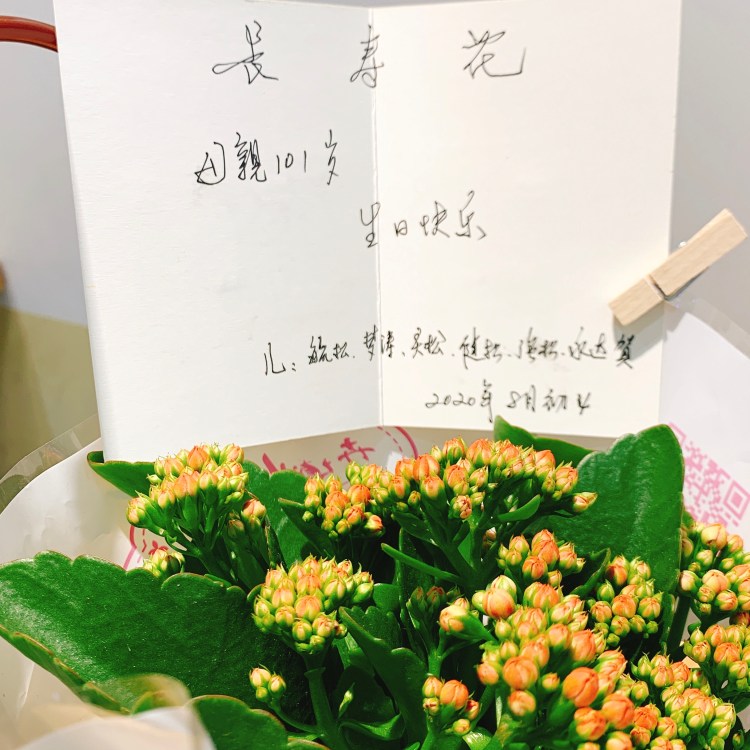 長寿花
母親101岁
生日快乐
儿：毓松、梦涛、灵松、健松、海松、永达賀
2020年8月初4